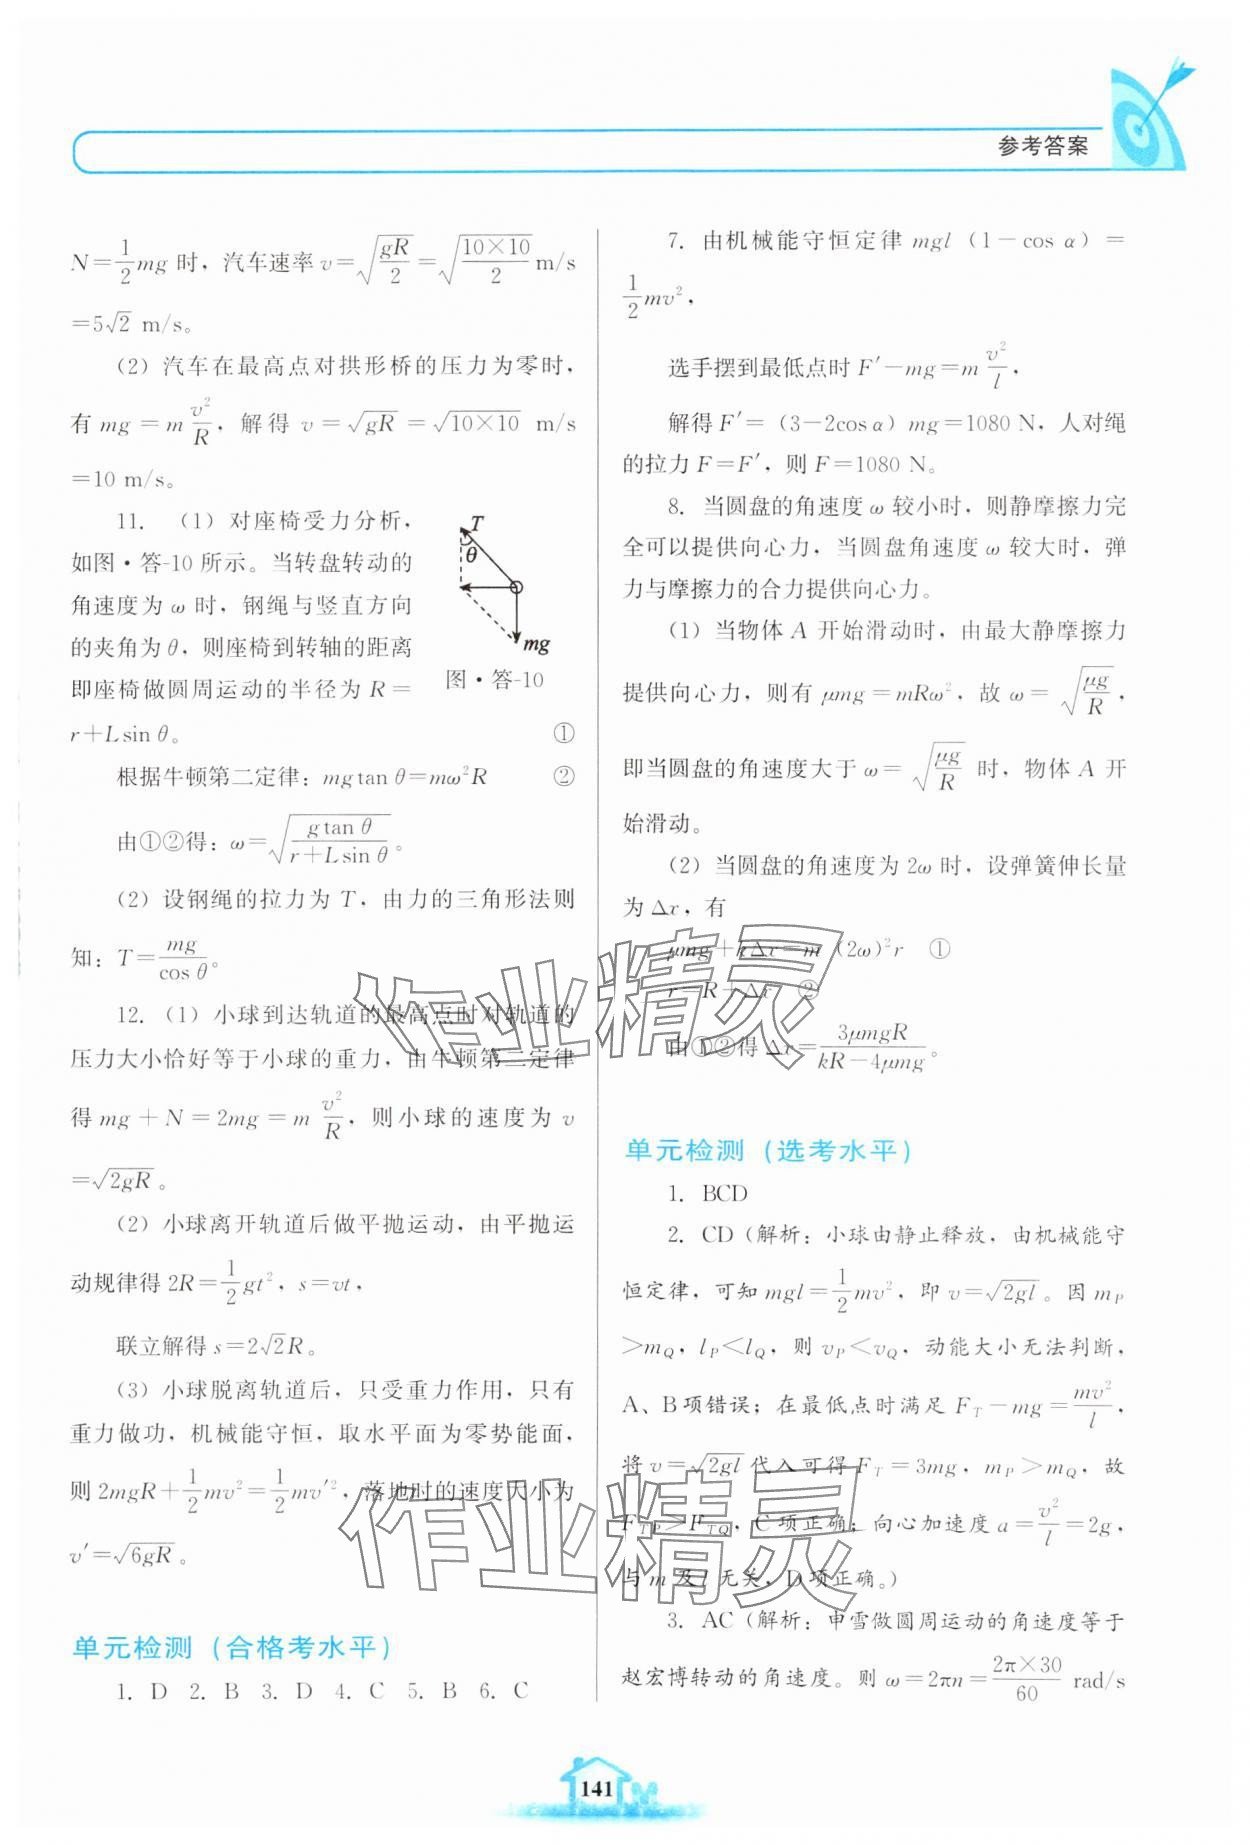 参考答案
N=\frac{1}{2}mg 时，汽车速率 v=\sqrt{\frac{gR}{2}}=\sqrt{\frac{10×10}{2}} m/s
=5\sqrt{2} m/s。
（2）汽车在最高点对拱形桥的压力为零时，
有 mg=m\frac{v^2}{R}，解得 v=\sqrt{gR}=\sqrt{10×10} m/s
=10 m/s。
11. （1）对座椅受力分析，
如图·答-10 所示。当转盘转动的
角速度为 ω 时，钢绳与竖直方向
的夹角为 θ，则座椅到转轴的距离
即座椅做圆周运动的半径为 R=
r+Lsin θ。 ①
T
θ
mg
图·答-10
根据牛顿第二定律：mgtan θ=mω²R ②
由①②得：ω=\sqrt{\frac{gtan θ}{r+Lsin θ}}。
（2）设钢绳的拉力为 T，由力的三角形法则
知：T=\frac{mg}{cos θ}。
12. （1）小球到达轨道的最高点时对轨道的
压力大小恰好等于小球的重力，由牛顿第二定律
得 mg+N=2mg=m\frac{v^2}{R}，则小球的速度为 v
=\sqrt{2gR}。
（2）小球离开轨道后做平抛运动，由平抛运
动规律得 2R=\frac{1}{2}gt²，s=vt，
联立解得 s=2\sqrt{2}R。
（3）小球脱离轨道后，只受重力作用，只有
重力做功，机械能守恒，取水平面为零势能面，
则 2mgR+\frac{1}{2}mv²=\frac{1}{2}mv'²，落地时的速度大小为
v'=\sqrt{6gR}。
单元检测（合格考水平）
1. D 2. B 3. D 4. C 5. B 6. C
7. 由机械能守恒定律 mgl（1-cos α）=
\frac{1}{2}mv²，
选手摆到最低点时 F'-mg=m\frac{v^2}{l}，
解得 F'=（3-2cos α）mg=1080 N，人对绳
的拉力 F=F'，则 F=1080 N。
8. 当圆盘的角速度 ω 较小时，则静摩擦力完
全可以提供向心力，当圆盘角速度 ω 较大时，弹
力与摩擦力的合力提供向心力。
（1）当物体 A 开始滑动时，由最大静摩擦力
提供向心力，则有 μmg=mRω²，故 ω=\sqrt{\frac{μg}{R}}，
即当圆盘的角速度大于 ω=\sqrt{\frac{μg}{R}} 时，物体 A 开
始滑动。
（2）当圆盘的角速度为 2ω 时，设弹簧伸长量
为 Δx，有
μmg+kΔx=m（2ω）²r ①
r=R+Δx ②
由①②得 Δx=\frac{3μmgR}{kR-4μmg}。
单元检测（选考水平）
1. BCD
2. CD（解析：小球由静止释放，由机械能守
恒定律，可知 mgl=\frac{1}{2}mv²，即 v=\sqrt{2gl}。因 m_P
>m_Q，l_P<l_Q，则 v_P<v_Q，动能大小无法判断，
A、B项错误；在最低点时满足 F_T-mg=\frac{mv^2}{l}，
将 v=\sqrt{2gl} 代入可得 F_T=3mg，m_P>m_Q，故
F_{TP}>F_{TQ}，C 项正确；向心加速度 a=\frac{v^2}{l}=2g，
与 m 及 l 无关，D项正确。）
3. AC（解析：申雪做圆周运动的角速度等于
赵宏博转动的角速度。则 ω=2πn=\frac{2π×30}{60} rad/s
作业精灵
作业精灵
141